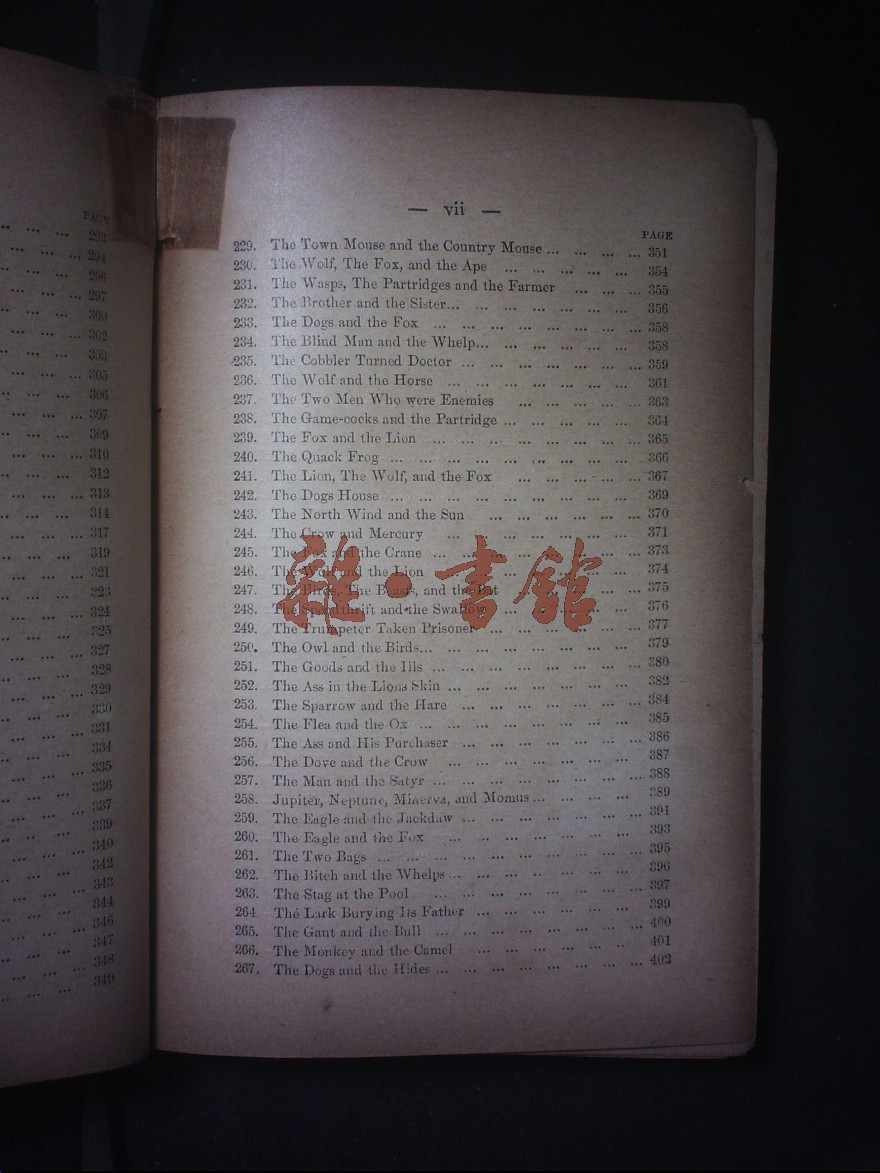 PAGE
293
294
296
297
300
302
303
305
306
307
309
310
312
313
314
317
319
321
323
324
325
327
328
329
330
331
334
335
336
337
339
340
342
343
344
346
347
348
349
— vii —
PAGE
229. The Town Mouse and the Country Mouse ... ... ... ... 351
230. The Wolf, The Fox, and the Ape ... ... ... ... ... 354
231. The Wasps, The Partridges and the Farmer ... ... ... 355
232. The Brother and the Sister... ... ... ... ... ... ... 356
233. The Dogs and the Fox ... ... ... ... ... ... ... ... 358
234. The Blind Man and the Whelp... ... ... ... ... ... 358
235. The Cobbler Turned Doctor ... ... ... ... ... ... ... 359
236. The Wolf and the Horse ... ... ... ... ... ... ... 361
237. The Two Men Who were Enemies ... ... ... ... ... 363
238. The Game-cocks and the Partridge ... ... ... ... ... 364
239. The Fox and the Lion ... ... ... ... ... ... ... ... 365
240. The Quack Frog ... ... ... ... ... ... ... ... ... 366
241. The Lion, The Wolf, and the Fox ... ... ... ... ... 367
242. The Dogs House ... ... ... ... ... ... ... ... ... 369
243. The North Wind and the Sun ... ... ... ... ... ... 370
244. The Crow and Mercury ... ... ... ... ... ... ... 371
245. The Fox and the Crane ... ... ... ... ... ... ... ... 373
246. The Wolf and the Lion ... ... ... ... ... ... ... 374
247. The Birds, The Beasts, and the Bat ... ... ... ... ... 375
248. The Spendthrift and the Swallow ... ... ... ... ... 376
249. The Trumpeter Taken Prisoner ... ... ... ... ... ... 377
250. The Owl and the Birds... ... ... ... ... ... ... ... 379
251. The Goods and the Ills ... ... ... ... ... ... ... ... 380
252. The Ass in the Lions Skin ... ... ... ... ... ... ... 382
253. The Sparrow and the Hare ... ... ... ... ... ... ... 384
254. The Flea and the Ox ... ... ... ... ... ... ... ... 385
255. The Ass and His Purchaser ... ... ... ... ... ... ... 386
256. The Dove and the Crow ... ... ... ... ... ... ... 387
257. The Man and the Satyr ... ... ... ... ... ... ... ... 388
258. Jupiter, Neptune, Minerva, and Momus ... ... ... ... 389
259. The Eagle and the Jackdaw ... ... ... ... ... ... ... 391
260. The Eagle and the Fox ... ... ... ... ... ... ... 393
261. The Two Bags ... ... ... ... ... ... ... ... ... ... 395
262. The Bitch and the Whelps ... ... ... ... ... ... ... 396
263. The Stag at the Pool ... ... ... ... ... ... ... ... 397
264 The Lark Burying Its Father ... ... ... ... ... ... 399
265. The Gant and the Bull ... ... ... ... ... ... ... ... 400
266. The Monkey and the Camel ... ... ... ... ... ... 401
267. The Dogs and the Hides ... ... ... ... ... ... ... ... 402
雜·書館